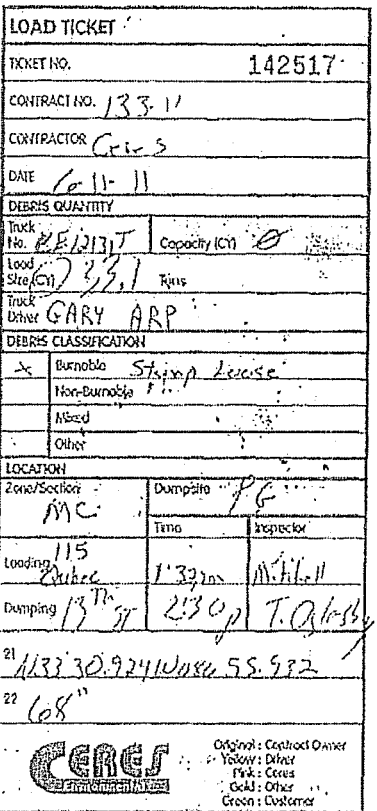 LOAD TICKET
TICKET NO. 142517
CONTRACT NO. 133-11
CONTRACTOR Ceres
DATE 6-11-11
DEBRIS QUANTITY
Truck No. Capacity (CY) Ø
Load Size (CY) Tons
Truck Driver GARY ARP
DEBRIS CLASSIFICATION
X Burnable Stump
Non-Burnable
Mixed
Other
LOCATION
Zone/Section MC Dumpsite PG
Time Inspector
Loading 115 Qubec Mitchell
Dumping 13TH ST 2:30p
21
22 68"
CERES
Environmental
Original : Contract Owner
Yellow : Driver
Pink : Ceres
Gold : Other
Green : Customer